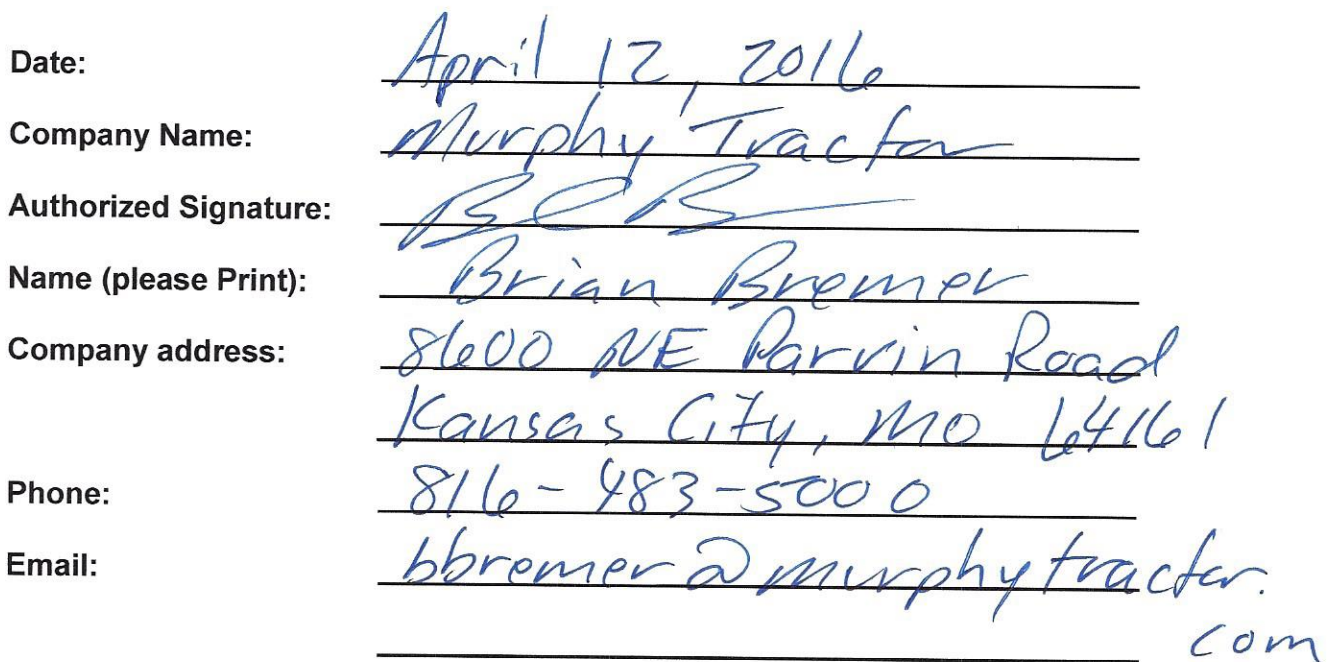 Date: April 12, 2016
Company Name: Murphy Tractor
Authorized Signature:
Name (please Print): Brian Bremer
Company address: 8600 NE Parvin Road
Kansas City, MO 64161
Phone: 816-483-5000
Email: bbremer@murphytractor.
com